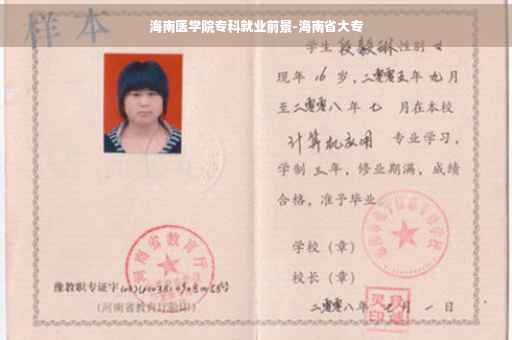 海南医学院专科就业前景-海南省大专
样本
学生 段毅琳 性别 女
现年 16 岁，二零零五年 九 月
至二零零八年 七 月在本校
计算机应用 专业学习，
学制 三 年，修业期满，成绩
合格，准予毕业。
学校（章）
校长（章）
二零零八年 七 月 一 日
河南省教育厅
豫教职专证字
（河南省教育厅验印）